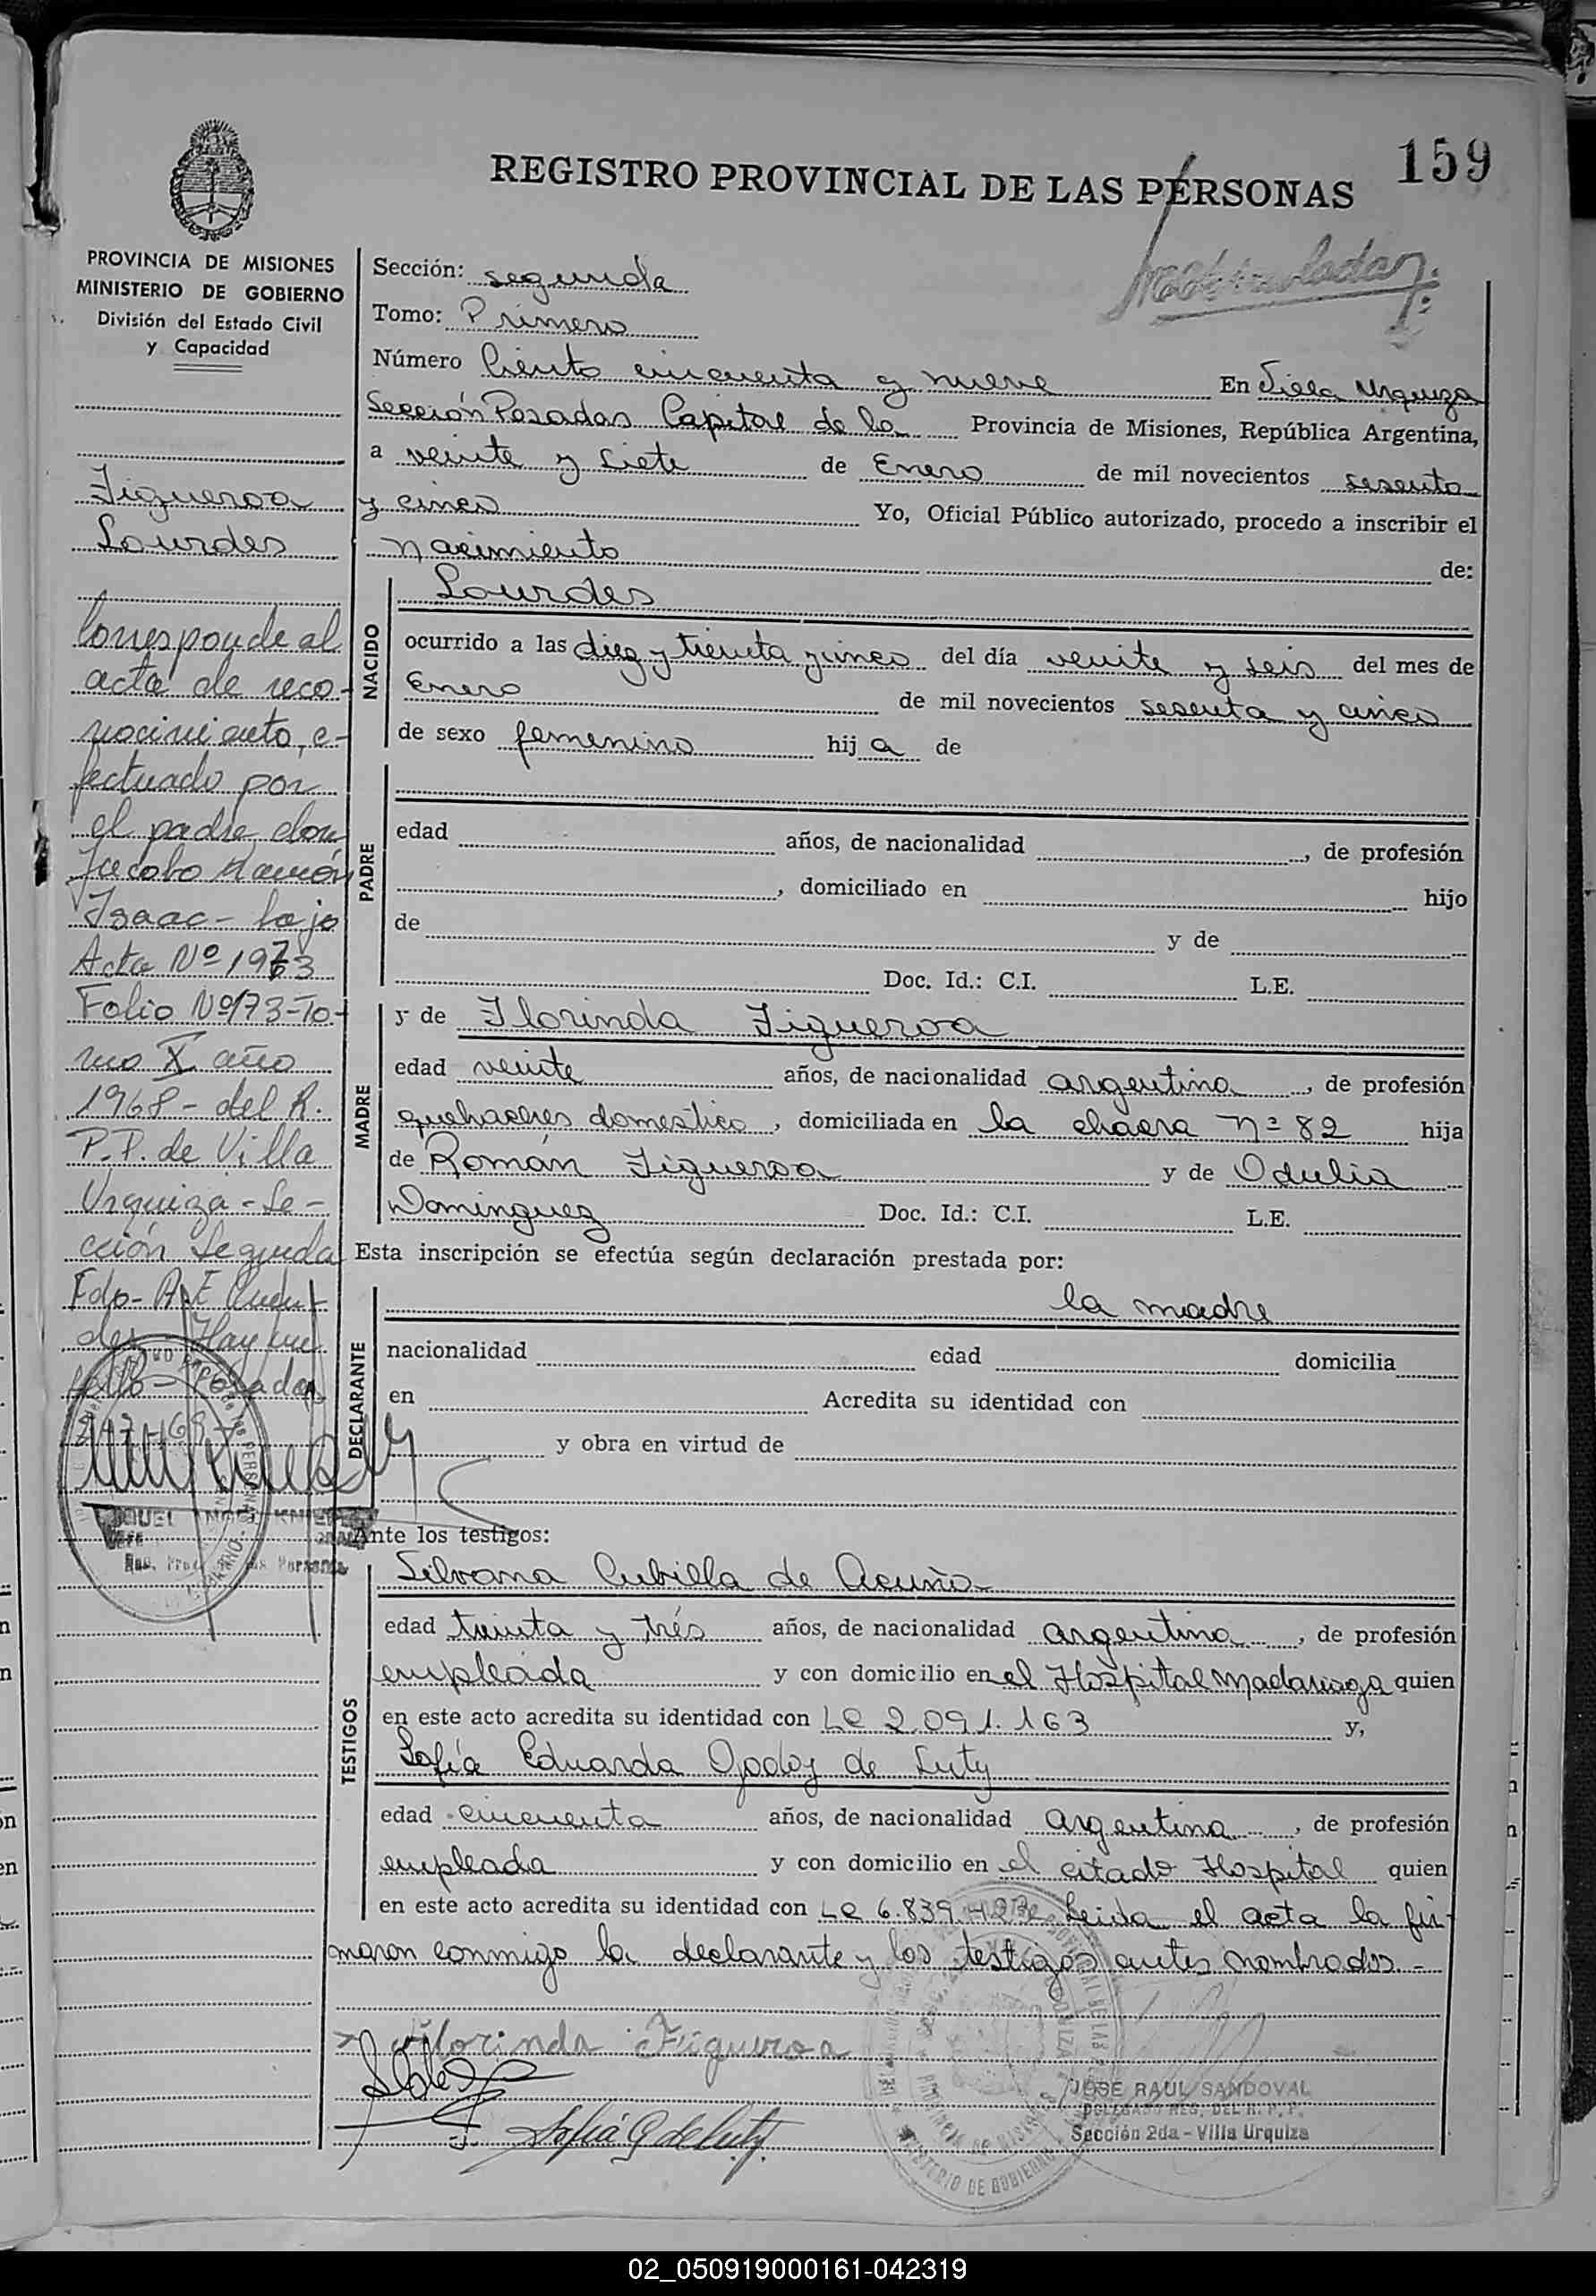 159
REGISTRO PROVINCIAL DE LAS PERSONAS
PROVINCIA DE MISIONES
MINISTERIO DE GOBIERNO
División del Estado Civil
y Capacidad
Figueroa
Lourdes
Corresponde al
acta de reco-
nocimiento, e-
fectuado por
el padre don
Jacobo Ramón
Isaac - bajo
Acta Nº 1973
Folio Nº 173 - To-
mo X año
1968 - del R.
P.P. de Villa
Urquiza - Se-
cción Segunda
Fdo-
Hay un
sello - Posadas
Sección: segunda
Tomo: Primero
Número Ciento cincuenta y nueve En Villa Urquiza
Sección Posadas Capital de la Provincia de Misiones, República Argentina,
a veinte y siete de Enero de mil novecientos sesenta
y cinco Yo, Oficial Público autorizado, procedo a inscribir el
nacimiento de:
NACIDO
Lourdes
ocurrido a las diez y treinta y cinco del día veinte y seis del mes de
Enero de mil novecientos sesenta y cinco
de sexo femenino hija de
PADRE
edad años, de nacionalidad , de profesión
, domiciliado en hijo
de y de
Doc. Id.: C.I. L.E.
MADRE
y de Florinda Figueroa
edad veinte años, de nacionalidad argentina , de profesión
quehaceres domestico , domiciliada en la chacra nº 82 hija
de Román Figueroa y de Odulia
Dominguez Doc. Id.: C.I. L.E.
Esta inscripción se efectúa según declaración prestada por:
DECLARANTE
la madre
nacionalidad edad domicilia
en Acredita su identidad con
y obra en virtud de
Ante los testigos:
TESTIGOS
Silvana Cubilla de Acuña
edad treinta y trés años, de nacionalidad argentina , de profesión
empleada y con domicilio en el Hospital Madariaga quien
en este acto acredita su identidad con LC 2.091.163 y,
Sofía Eduarda Godoy de Luty
edad cincuenta años, de nacionalidad argentina , de profesión
empleada y con domicilio en el citado Hospital quien
en este acto acredita su identidad con LC 6.839. Leida el acta la fir-
maron conmigo la declarante y los testigos antes nombrados.-
Florinda Figueroa
Sofía G de Luty
JOSE RAUL SANDOVAL
DELEGADO REG. DEL R. P. P.
Sección 2da - Villa Urquiza
02_050919000161-042319